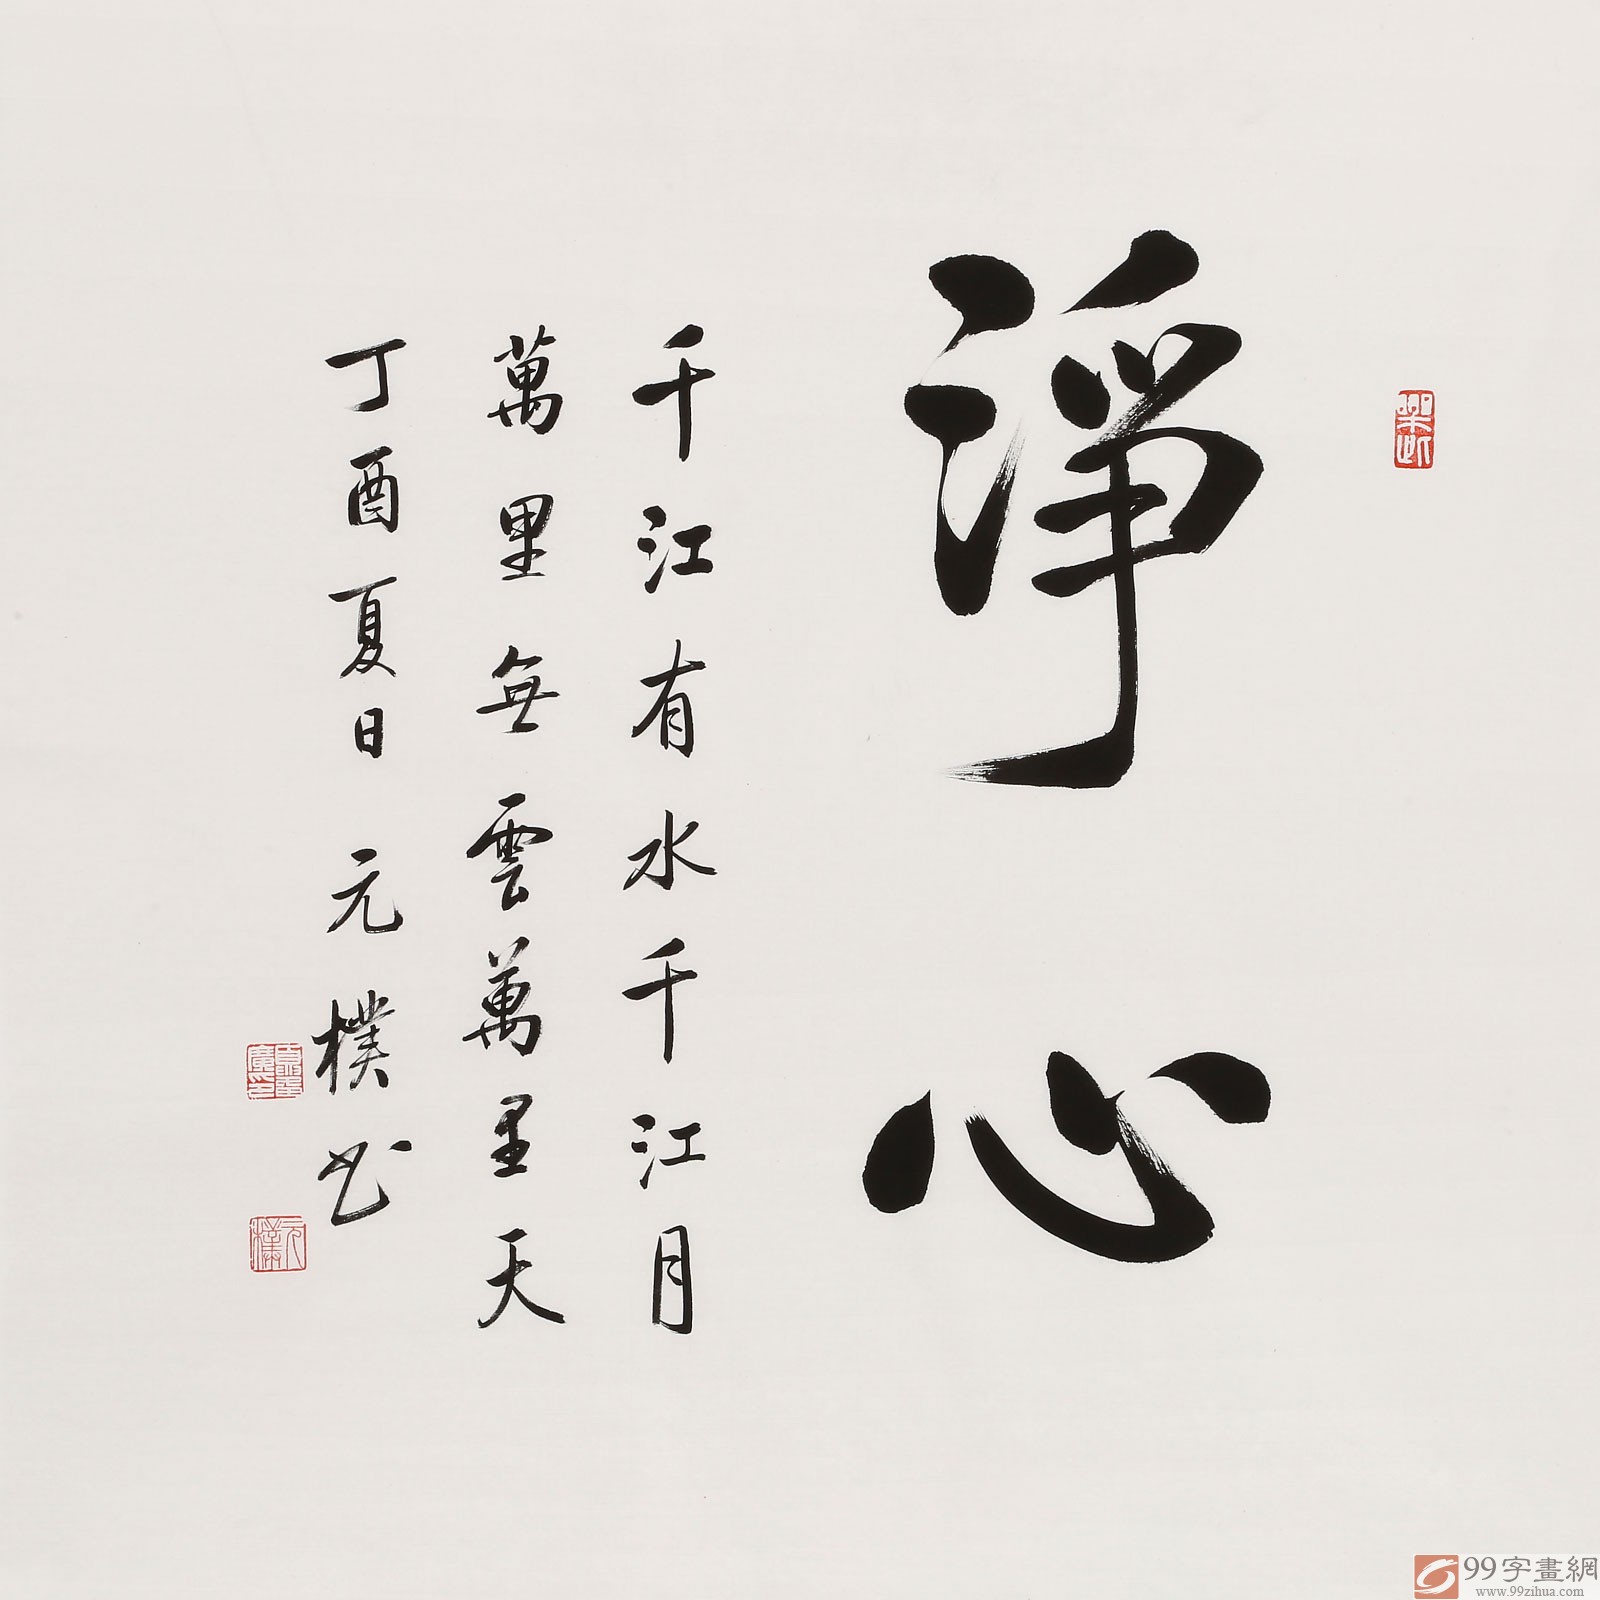 淨心
千江有水千江月
萬里無雲萬里天
丁酉夏日 元樸书
元樸
99字畫網
www.99zihua.com